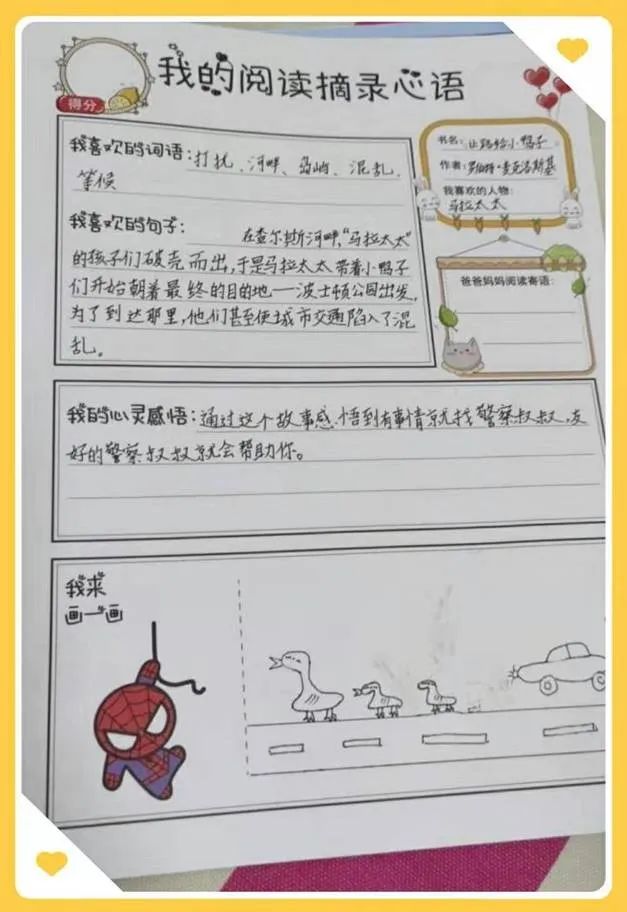 我的阅读摘录心语
得分
我喜欢的词语:打扰、河畔、岛屿、混乱、
等候
我喜欢的句子:
在查尔斯河畔,"马拉太太"
的孩子们破壳而出,于是马拉太太带着小鸭子
们开始朝着最终的目的地——波士顿公园出发,
为了到达那里,他们甚至使城市交通陷入了混
乱。
书名:让路给小鸭子
作者:罗伯特·麦克洛斯基
我喜欢的人物:
马拉太太
爸爸妈妈阅读寄语:
我的心灵感悟:通过这个故事感悟到有事情就找警察叔叔,友
好的警察叔叔就会帮助你。
我来
画一画